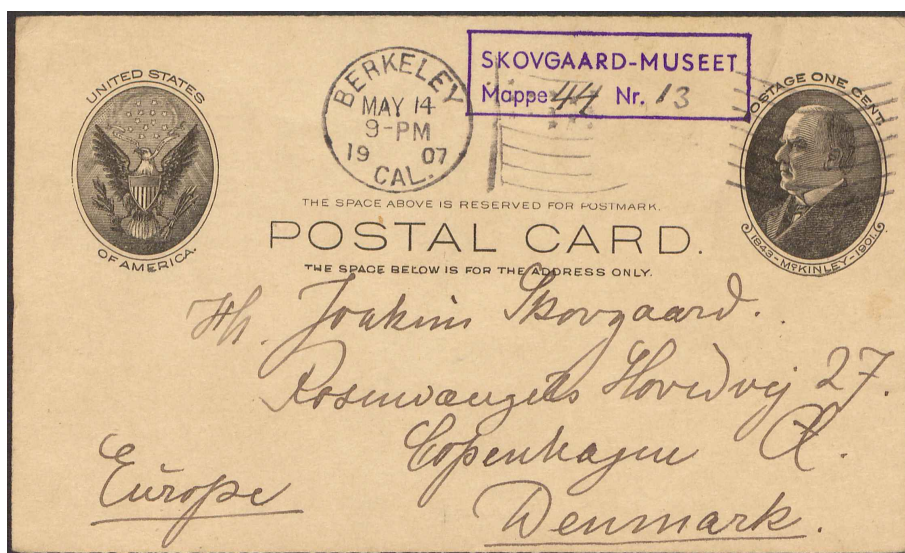 UNITED STATES
OF AMERICA.
BERKELEY
MAY 14
9-PM
19 07
CAL.
SKOVGAARD-MUSEET
Mappe 44 Nr. 13
POSTAGE ONE CENT.
1843-McKINLEY-1901.
THE SPACE ABOVE IS RESERVED FOR POSTMARK.
POSTAL CARD.
THE SPACE BELOW IS FOR THE ADDRESS ONLY.
Hr. Joakim Skovgaard.
Rosenvængets Hovedvej 27.
Copenhagen Ø.
Europe
Denmark.